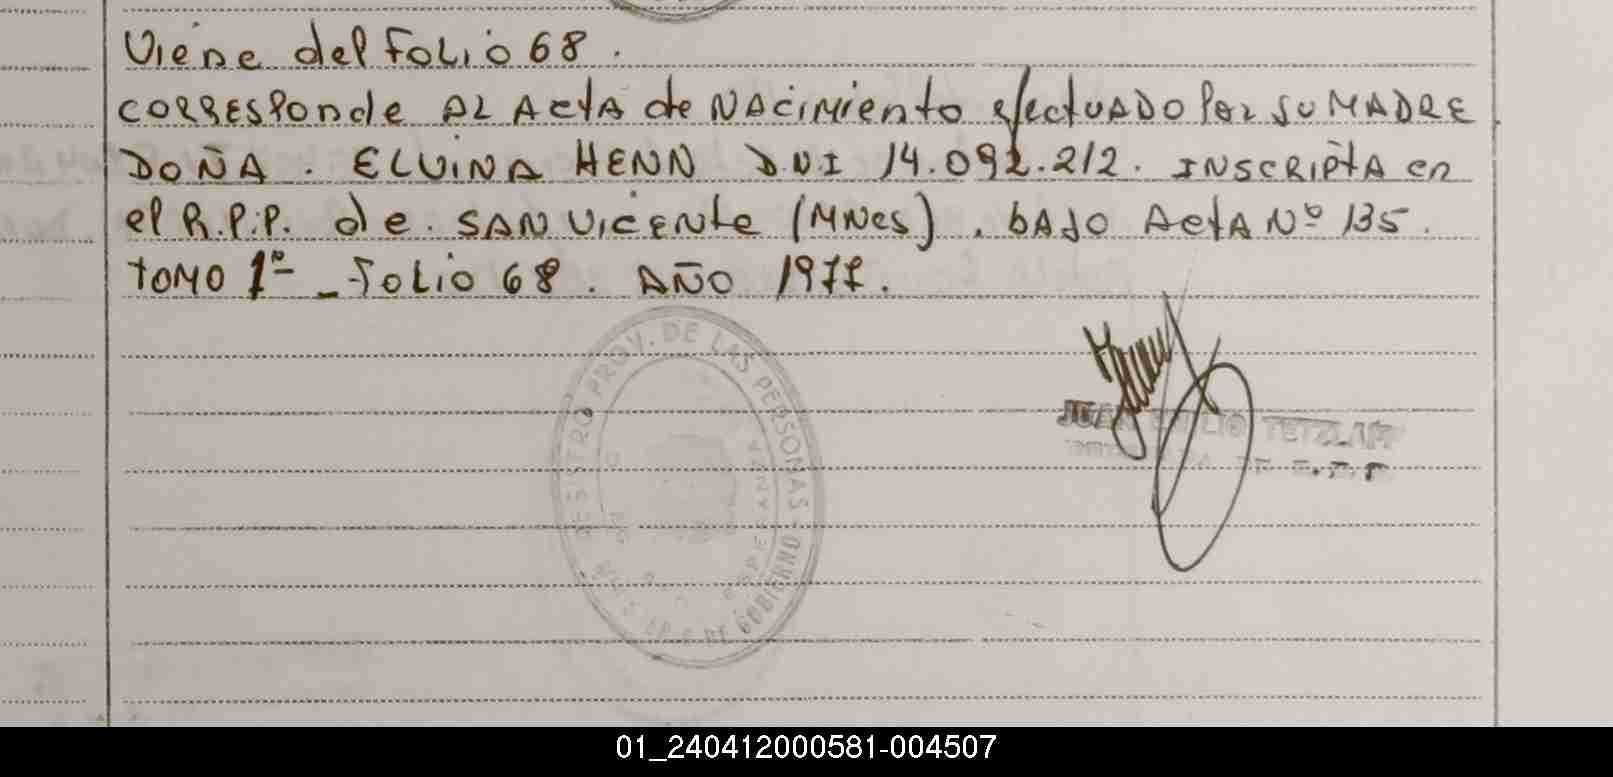 Viene del Folio 68.
CORRESPonde AL ActA de NAciMiento efectUADO Por SU MADRE
DOÑA. ELVINA HENN D.N.I 14.092.212. INSCRIPTA en
el R.P.P. de. SAN VicENte (MNes). bAJO ActA Nº 135.
TOMO 1º - Folio 68. AÑO 1977.
REGISTRO PROV. DE LAS PERSONAS - DE GOBIERNO
ESPERANZA
JUAN EMILIO TETZLAFF
01_240412000581-004507